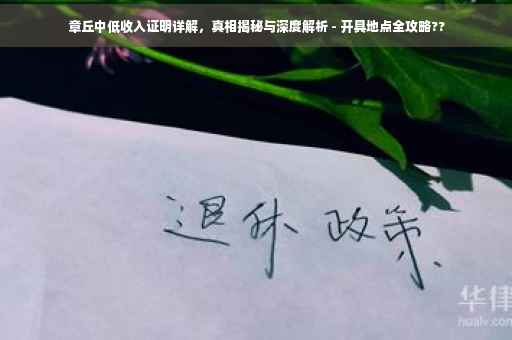 章丘中低收入证明详解，真相揭秘与深度解析 - 开具地点全攻略??
退休 政策
华律
hualv.com